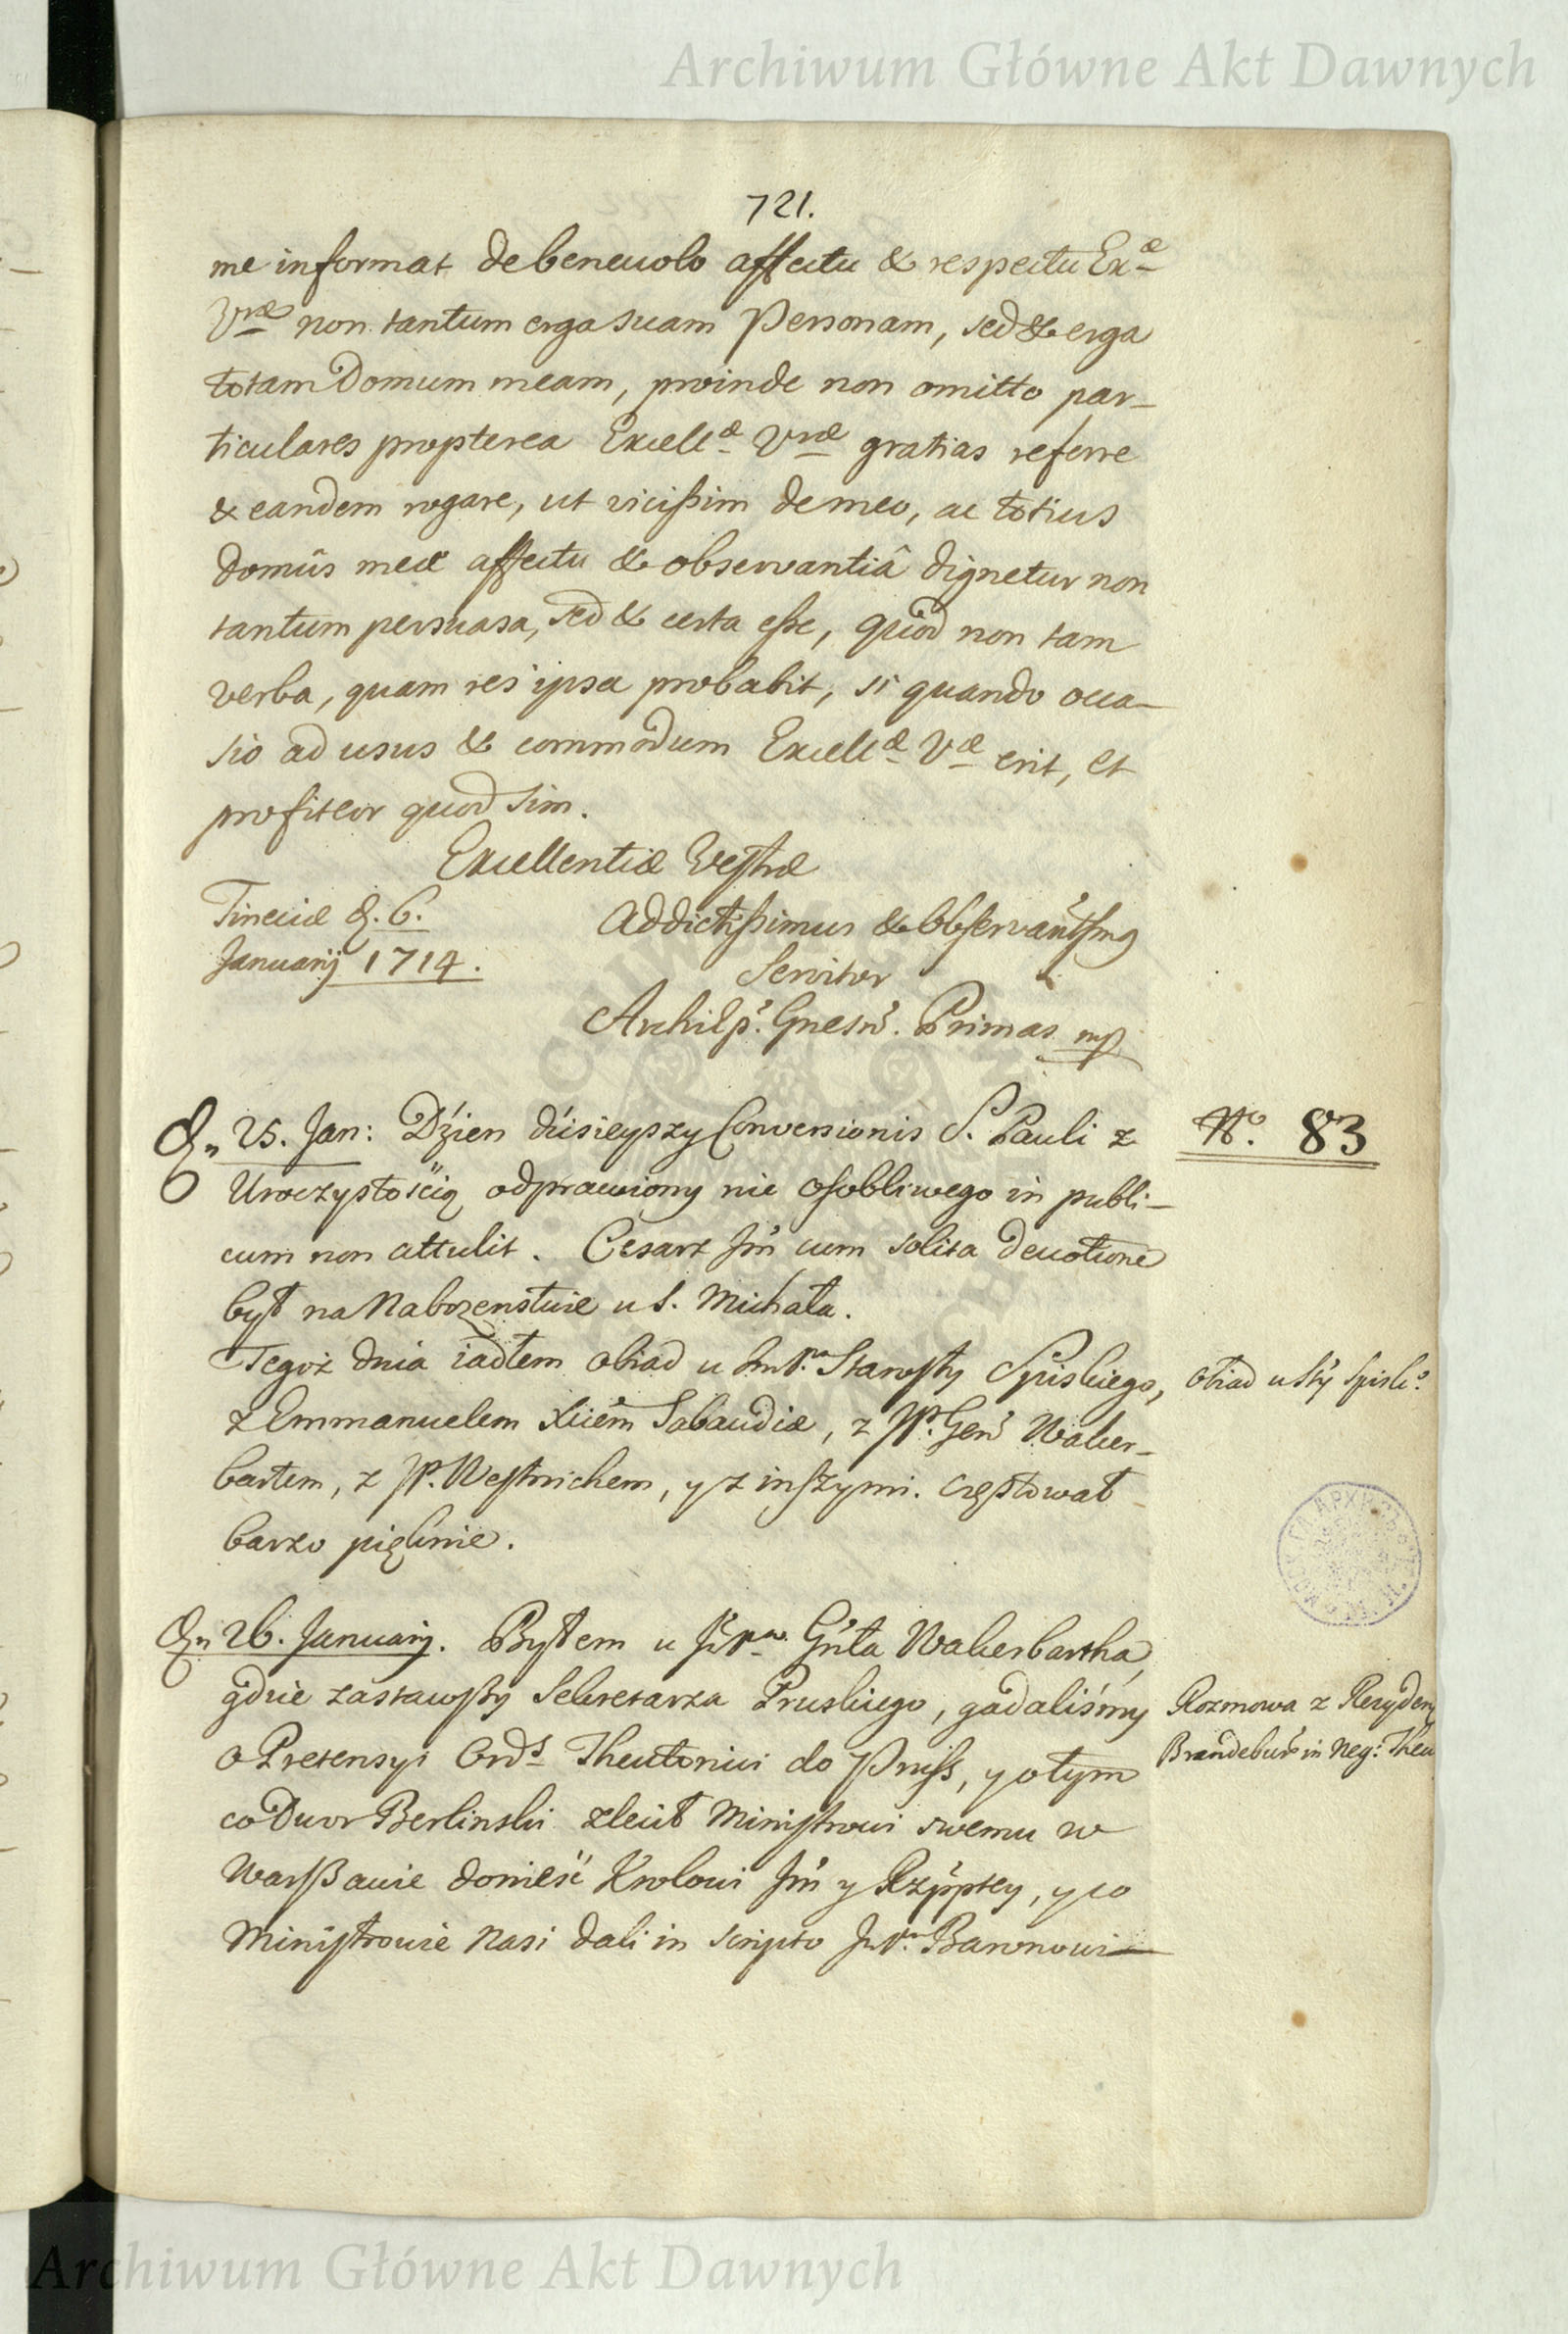 Archiwum Główne Akt Dawnych
721.
me informat de beneuolo affectu & respectu Exæ
Vræ non tantum erga suam Personam, sed & erga
totam Domum meam, proinde non omitto par-
ticulares propterea Excellæ Vræ gratias referre
& eandem rogare, ut vicißim de meo, ac totius
domûs meæ affectu & observantiâ dignetur non
tantum persuasa, sed & certa eße, quòd non tam
verba, quam res ipsa probabit, si quando occa-
sio ad usus & commodum Excellæ Væ erit, et
profiteor quod sim.
Excellentiæ Vestræ
Tineciæ d. 6.
Addictißimus & Observantsmg
Januarij 1714.
Servitor
Archiepp. Gnesn. Primas mp
Dn 25. Jan: Dźien dźisieyszy Conversionis S. Pauli z
No. 83
Uroczystośćią odprawiony nic osobliwego in publi-
cum non attulit. Cesarz Jm cum solita devotione
był na Nabożenstwie u S. Michała.
Tegoż dnia iadłem obiad u JmPna Starosty Spiskiego,
obiad u Sty Spisko.
z Emmanuelem Xciem Sabaudiæ, z JP. Gen Waker-
bartem, z JP. Westrichem, y z inszymi. częstował
barzo pięknie.
Dn 26. Januarij. Byłem u JmPna Gnła Wakerbartha,
gdzie zastawszy Sekretarza Pruskiego, gadaliśmy
Rozmowa z Rezyden
o Pretensyi Ords Theutonici do Pruss, y o tym
Brandebur in Neg: Theu
co Dwor Berlinski zlecił Ministrowi swemu w
Warszawie donieść Krolowi Jm y Rzpptey, y co
Ministrowie nasi dali in scripto JmPnu Baronowi
Archiwum Główne Akt Dawnych